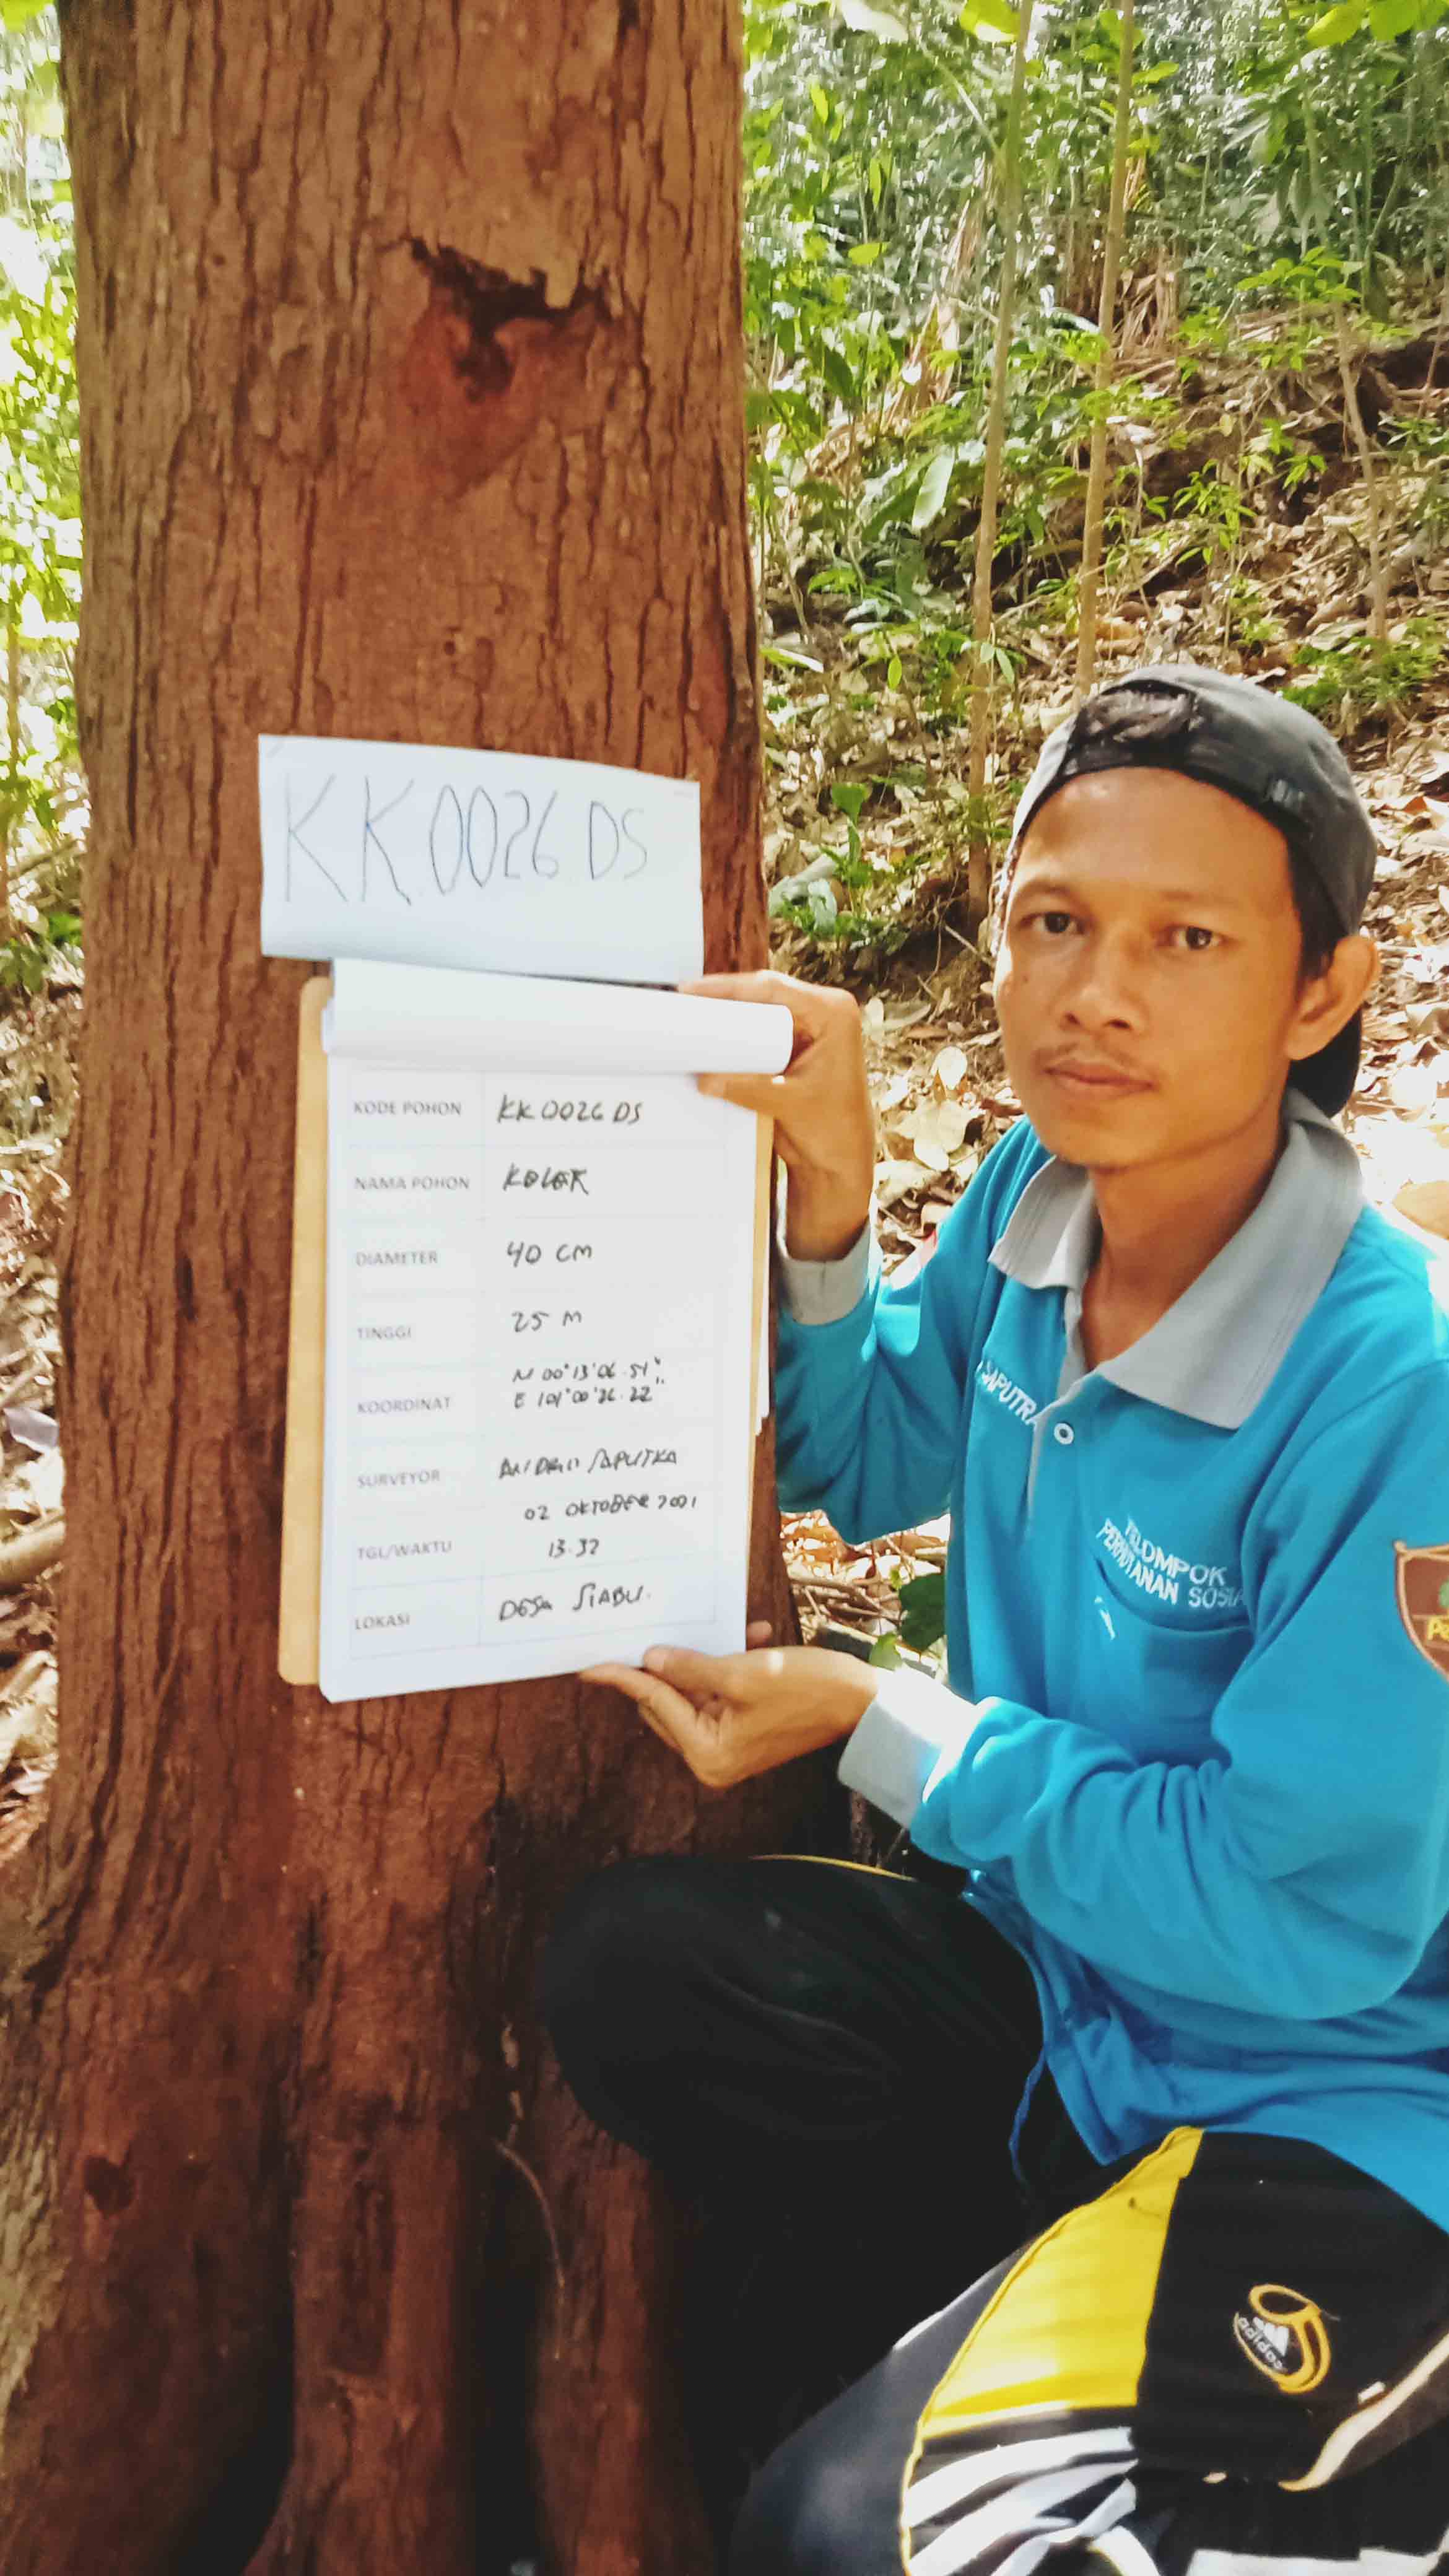 KK.0026.DS
KODE POHON KK 0026 DS
NAMA POHON KELAK
DIAMETER 40 CM
TINGGI 25 M
KOORDINAT N 00°13'06.51"
E 101°00'26.22"
SURVEYOR ANDRII SAPUTRA
TGL/WAKTU 02 OKTOBER 2021
13.32
LOKASI DESA SIABU.
SAPUTRA
KELOMPOK
PERHUTANAN SOSIA
adidas